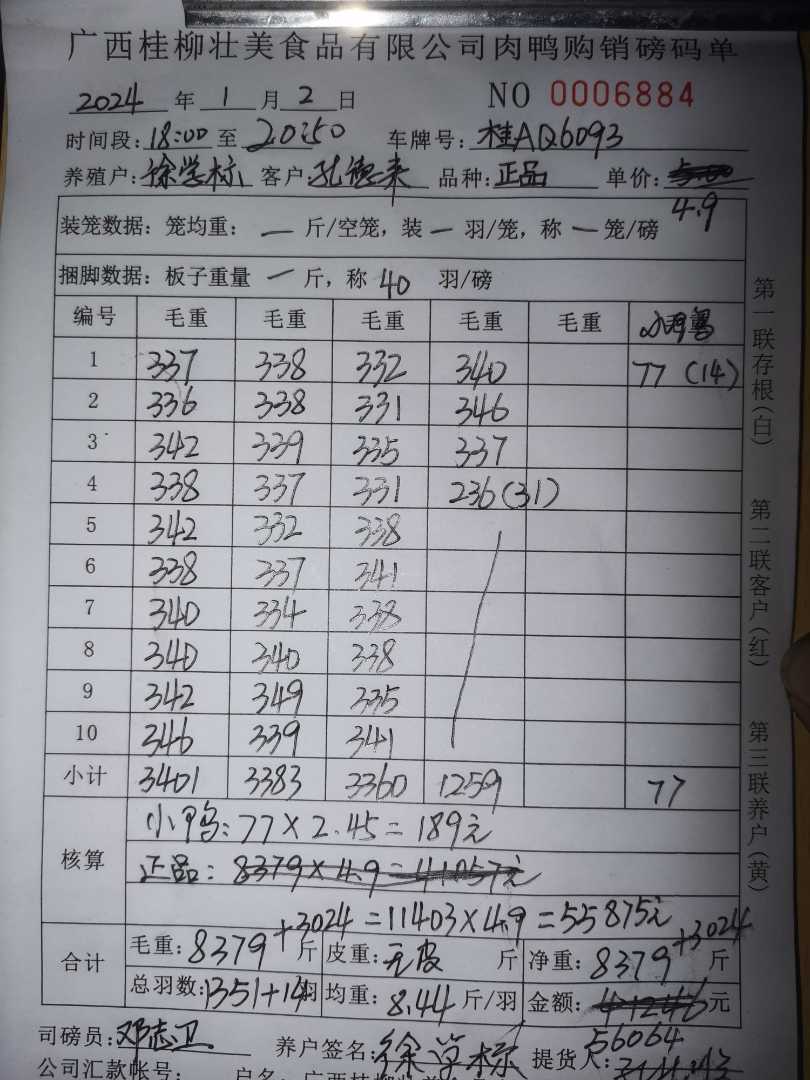 广西桂柳壮美食品有限公司肉鸭购销磅码单
2024 年 1 月 2 日 NO 0006884
时间段: 18:00 至 20:50 车牌号: 桂AQ6093
养殖户: 徐学标 客户: 孔德来 品种: 正品 单价:
4.9
装笼数据: 笼均重: — 斤/空笼, 装 — 羽/笼, 称 — 笼/磅
捆脚数据: 板子重量 — 斤, 称 40 羽/磅
编号 毛重 毛重 毛重 毛重 毛重
1 337 338 332 340 77 (14)
2 336 338 331 346
3 342 339 335 337
4 338 337 331 236(31)
5 342 332 338
6 338 337 341
7 340 334 338
8 340 340 338
9 342 349 335
10 346 339 341
小计 3401 3383 3360 1259 77
核算 小鸭: 77×2.45=189元
正品: 8379×4.9=41057元
+3024=11403×4.9=55875元
合计 毛重: 8379+3024 斤 皮重: 无皮 斤 净重: 8379+3024 斤
总羽数: 1351+14羽 均重: 8.44 斤/羽 金额: 41246元
56064
司磅员: 邓志卫 养户签名: 徐学标 提货人:
公司汇款帐号: 户名: 广西桂柳壮美
第一联存根(白)
第二联客户(红)
第三联养户(黄)